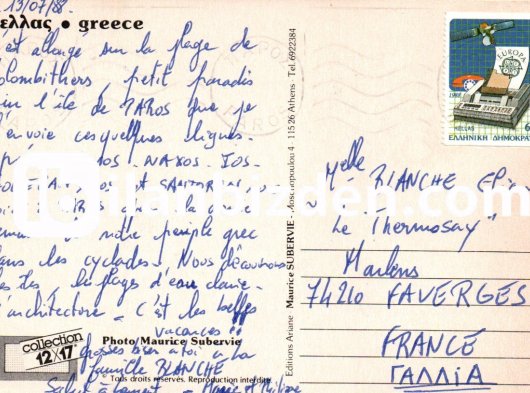 13/07/88.
ελλας • greece
'est allongé sur la plage de
olombithres, petit paradis
sur l'île de PAROS que je
t'envoie ces quelques lignes.
NAXOS. IOS.
et SANTORIN
notre périple grec
dans les cyclades. Nous découvrons
les îles, les plages d'eau claire
'architecture - C'est les belles
vacances
Grosses bises à toi à la
famille BLANCHE
Salut à Laurent - Marie et Philippe
collection
12x17
Photo/Maurice Subervie
Tous droits réservés. Reproduction interdite.
Editions Ariane Maurice SUBERVIE - Moschopoulou 4 115 26 Athens Tel. 6922384
PAROS
EUROPA
CEPT
1988
HELLAS
ΕΛΛΗΝΙΚΗ ΔΗΜΟΚΡΑΤ
Melle BLANCHE
"Le Thermosay"
Marlens
74210 FAVERGES
FRANCE
ΓΑΛΛΙΑ